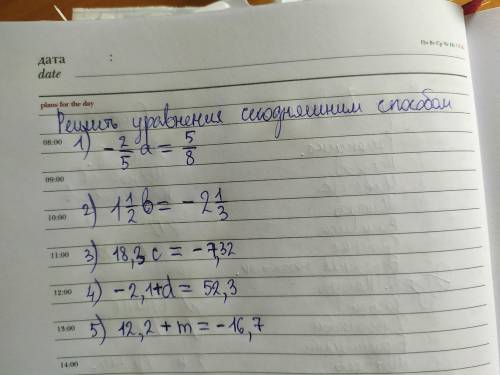 дата :
date
Пн Вт Ср Чт Пт Сб Вс
plans for the day
Решить уравнения сегодняшним способом
08:00 1) -2/5 a = 5/8
09:00
10:00 2) 1 1/2 b = -2 1/3
11:00 3) 18,3 c = -7,32
12:00 4) -2,1+d = 52,3
13:00 5) 12,2 + m = -16,7
14:00